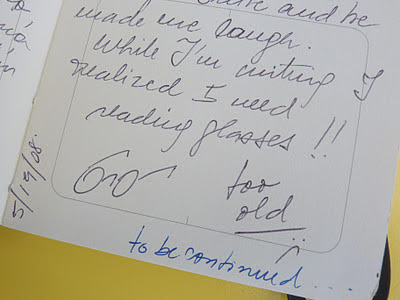 and he
made me laugh.
While I'm writing I
realized I need
reading glasses!!
too
old
to be continued....
5/19/08.